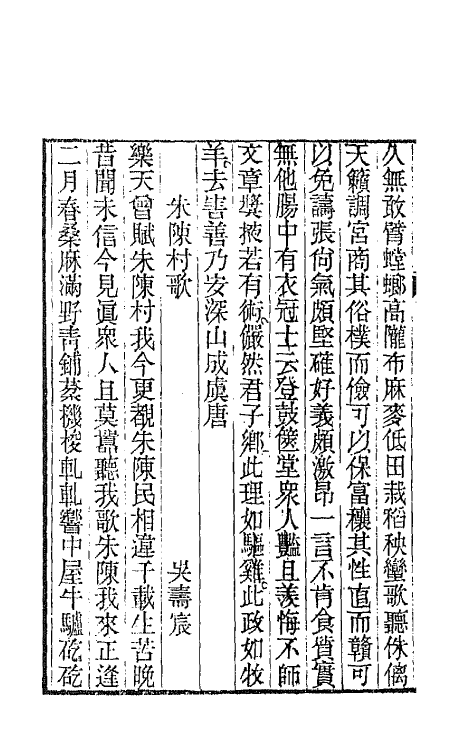 久無敢臂螳螂高隴布麻麥低田栽稻秧蠻歌聽侏㒧
天籟調宮商其俗樸而儉可以保富穰其性直而贛可
以免譸張尙氣頗堅確好義頗激昂一言不肯食質實
無他腸中有衣冠士云登鼓篋堂衆人豔且羨悔不師
文章奬掖若有術儼然君子鄉此理如驅雞此政如牧
羊去害善乃安深山成虞唐
朱陳村歌　吳壽宸
樂天曾賦朱陳村我今更觀朱陳民相違千載生苦晚
昔聞未信今見眞衆人且莫嚣聽我歌朱陳我來正逢
二月春桑麻滿野靑鋪棻機梭軋軋響中屋牛驢矻矻